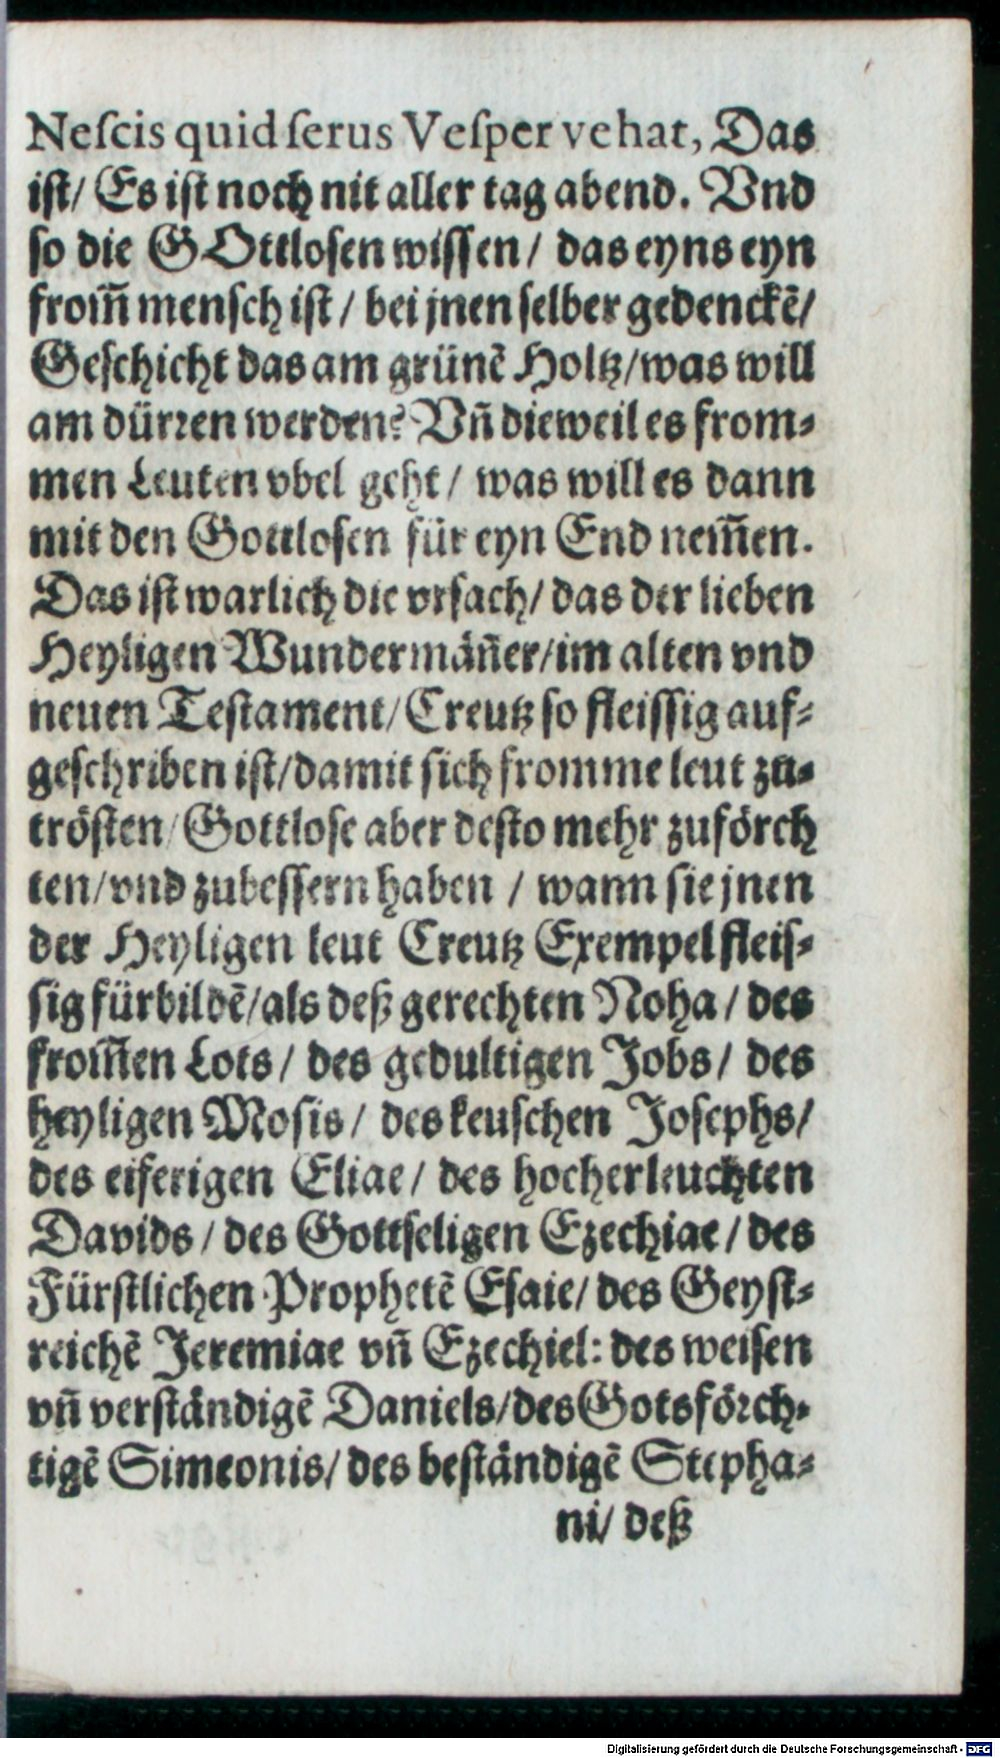 Neſcis quid ſerus Veſper vehat, Das
iſt/ Es iſt noch nit aller tag abend. Vnd
ſo die GOttloſen wiſſen/ das eyns eyn
from̃ menſch iſt/ bei jnen ſelber gedenckẽ/
Geſchicht das am grünẽ Holtz/was will
am dürꝛen werden? Vñ dieweil es from⸗
men Leuten vbel geht/ was will es dann
mit den Gottloſen für eyn End nem̃en.
Das iſt warlich die vrſach/ das der lieben
Heyligen Wundermäñer/im alten vnd
neuen Teſtament/Creutz ſo fleiſſig auf⸗
geſchriben iſt/damit ſich fromme leut zu⸗
tröſten/Gottloſe aber deſto mehr zuförch
ten/vnd zubeſſern haben / wann ſie jnen
der Heyligen leut Creutz Exempel fleiſ⸗
ſig fürbildẽ/als deß gerechten Noha/ des
from̃en Lots/ des gedultigen Jobs/ des
heyligen Moſis/ des keuſchen Joſephs/
des eiferigen Eliae/ des hocherleuchten
Davids/ des Gottſeligen Ezechiae/ des
Fürſtlichen Prophetẽ Eſaie/ des Geyſt⸗
reichẽ Jeremiae vñ Ezechiel: des weiſen
vñ verſtändigẽ Daniels/des Gotsföꝛch⸗
tigẽ Simeonis/ des beſtändigẽ Stepha⸗
ni/ deß
Digitalisierung gefördert durch die Deutsche Forschungsgemeinschaft - DFG